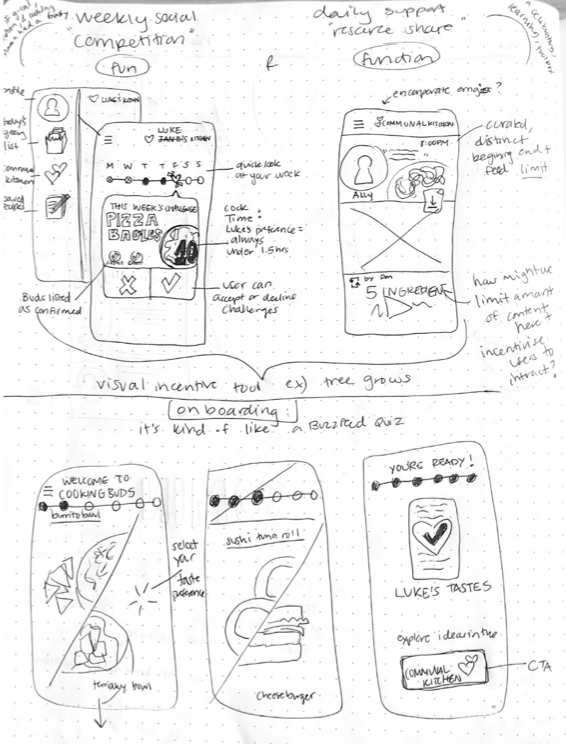 "weekly social
competition"
fun
&
daily support
"resource share"
function
celebratory,
learning, toolbox
profile
today's
grocery
list
communal
kitchen
saved
recipes
LUKE'S KITCHEN
LUKE
KITCHEN
M W T T F S S
quick look
at your week.
THIS WEEK'S CHALLENGE
PIZZA
BAGLES
40
cook
Time:
Luke's preference =
always
under 1.5hrs
Buds listed
as confirmed
user can
accept or decline
challenges
encorporate emojis?
COMMUNAL KITCHEN
5:00PM
Ally
curated,
distinct
beginning end +
feed limit
by Dan
5 INGREDIENT
how might we
limit amount
of content
here +
incentivise
users to
intract?
visual incentive tool ex) tree grows
onboarding:
it's kind of like a BuzzFeed Quiz
WELCOME TO
COOKINGBUDS
burrito bowl
teriaky bowl
select
your
taste
preference
sushi tuna roll
cheeseburger
YOURG READY!
LUKE'S TASTES
explore ideas in the
COMMUNAL
KITCHEN
CTA